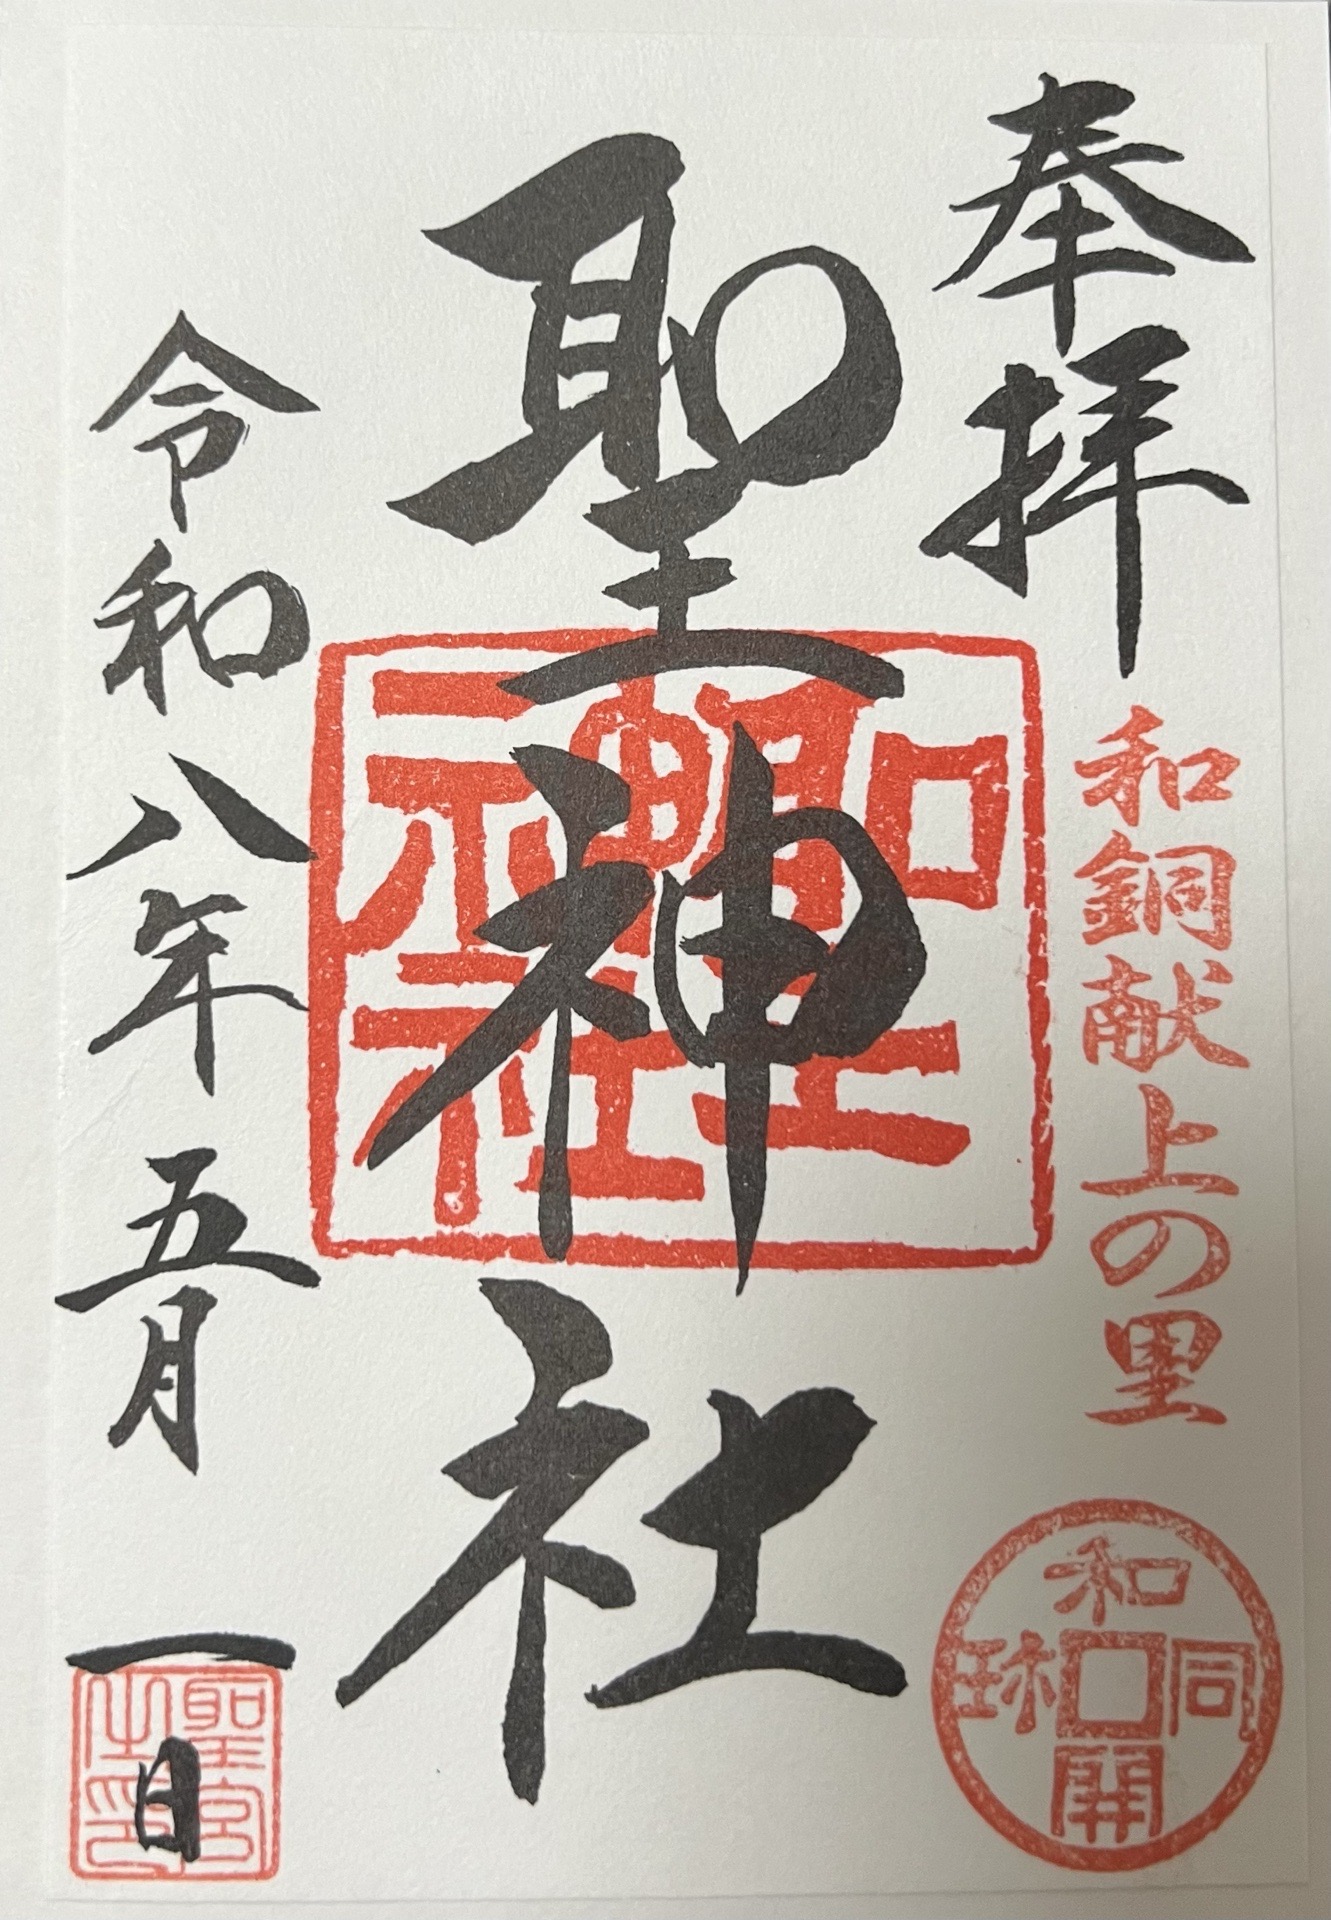 奉拝
和銅献上の里
和同開珎
聖神社
聖神社
令和八年五月一日
聖宮之印